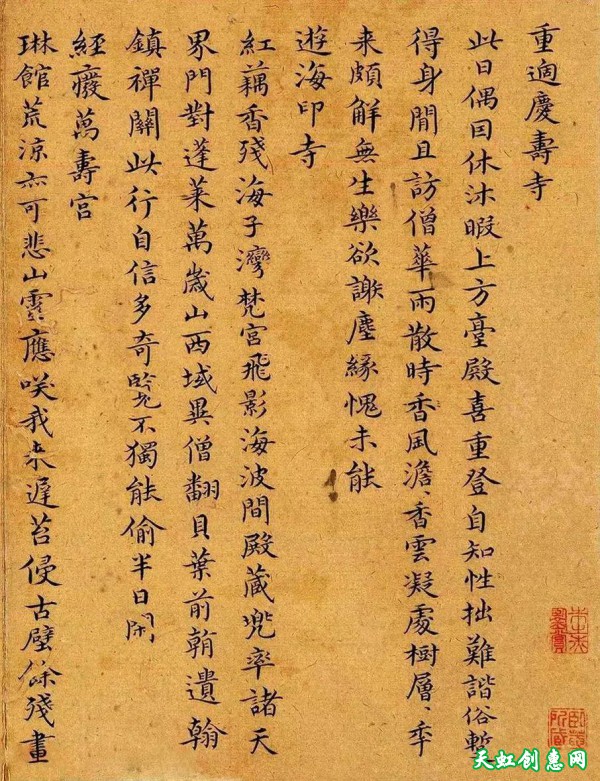 重適慶壽寺
此日偶囙休沐暇上方臺殿喜重登自知性拙難諧俗暫
得身閒且訪僧華雨散時香風澹、香雲凝處樹層、季
来頗解無生樂欲謝塵緣愧未能
遊海印寺
紅藕香殘海子灣梵宮飛影海波間殿藏兜率諸天
界門對蓬莱萬歲山西域異僧翻貝葉前朝遺翰
鎮禪關此行自信多奇覽不獨能偷半日閒
經廢萬壽宮
琳館荒涼亦可悲山靈應咲我来遲苔侵古壁餘殘畫
天虹创惠网